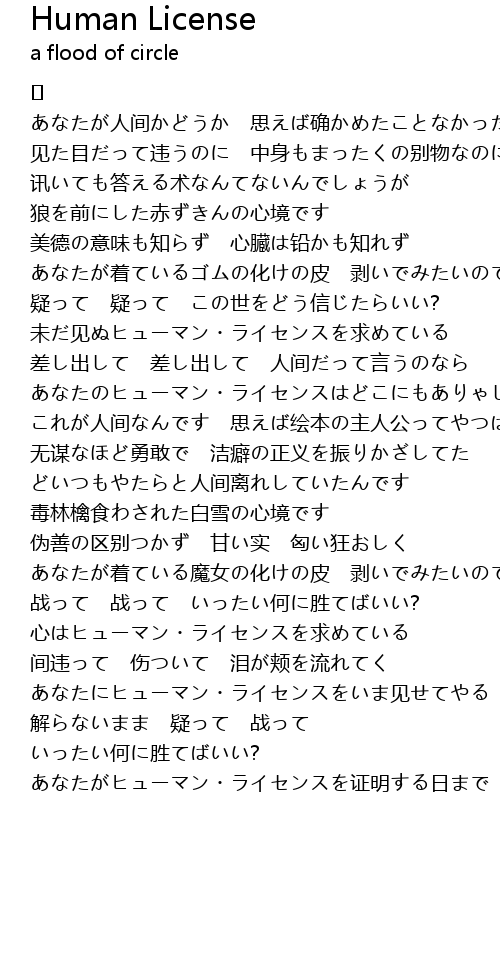 Human License
a flood of circle
[]
あなたが人间かどうか　思えば确かめたことなかった
见た目だって违うのに　中身もまったくの别物なのに
讯いても答える术なんてないんでしょうが
狼を前にした赤ずきんの心境です
美德の意味も知らず　心臓は铅かも知れず
あなたが着ているゴムの化けの皮　剥いでみたいので
疑って　疑って　この世をどう信じたらいい?
未だ见ぬヒューマン・ライセンスを求めている
差し出して　差し出して　人间だって言うのなら
あなたのヒューマン・ライセンスはどこにもありゃし
これが人间なんです　思えば绘本の主人公ってやつは
无谋なほど勇敢で　洁癖の正义を振りかざしてた
どいつもやたらと人间离れしていたんです
毒林檎食わされた白雪の心境です
伪善の区别つかず　甘い实　匈い狂おしく
あなたが着ている魔女の化けの皮　剥いでみたいので
战って　战って　いったい何に胜てばいい?
心はヒューマン・ライセンスを求めている
间违って　伤ついて　泪が颊を流れてく
あなたにヒューマン・ライセンスをいま见せてやる
解らないまま　疑って　战って
いったい何に胜てばいい?
あなたがヒューマン・ライセンスを证明する日まで